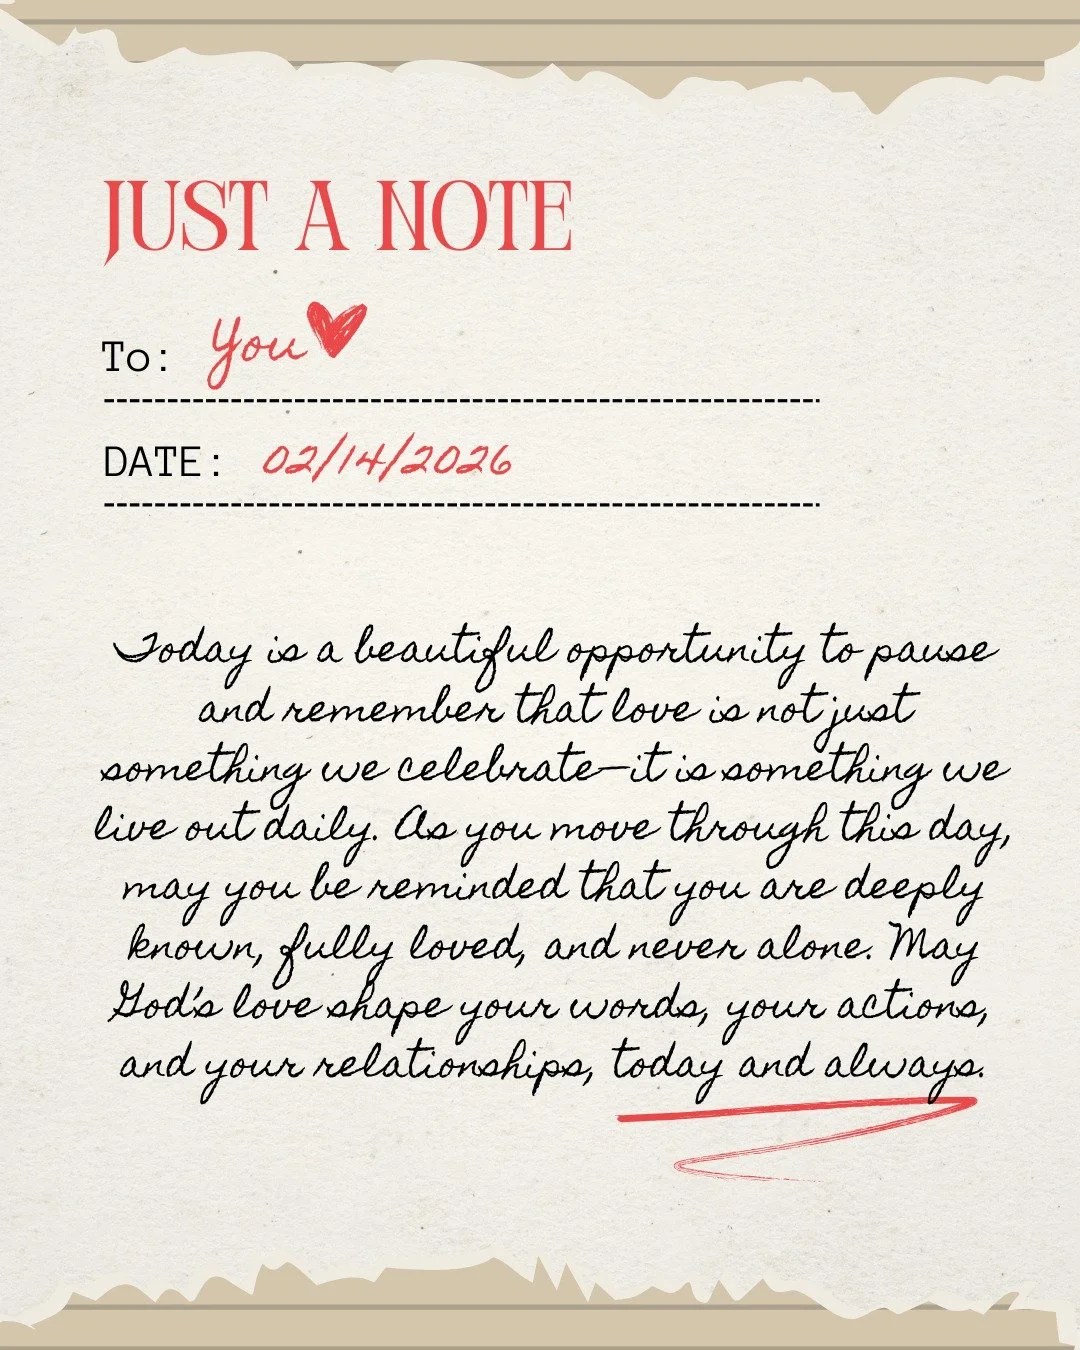 JUST A NOTE
To: You
DATE: 02/14/2026
Today is a beautiful opportunity to pause
and remember that love is not just
something we celebrate—it is something we
live out daily. As you move through this day,
may you be reminded that you are deeply
known, fully loved, and never alone. May
God's love shape your words, your actions,
and your relationships, today and always.